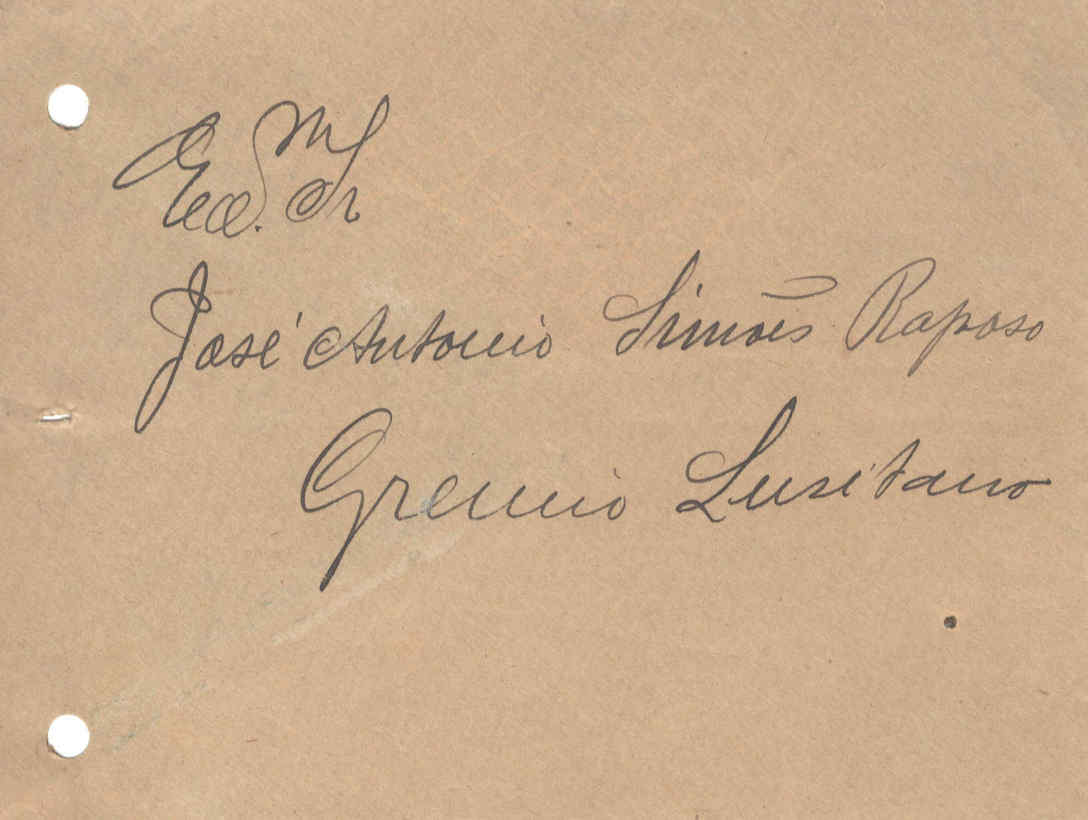 Exc.mo Sr
José Antonio Simões Raposo
Gremio Lusitano